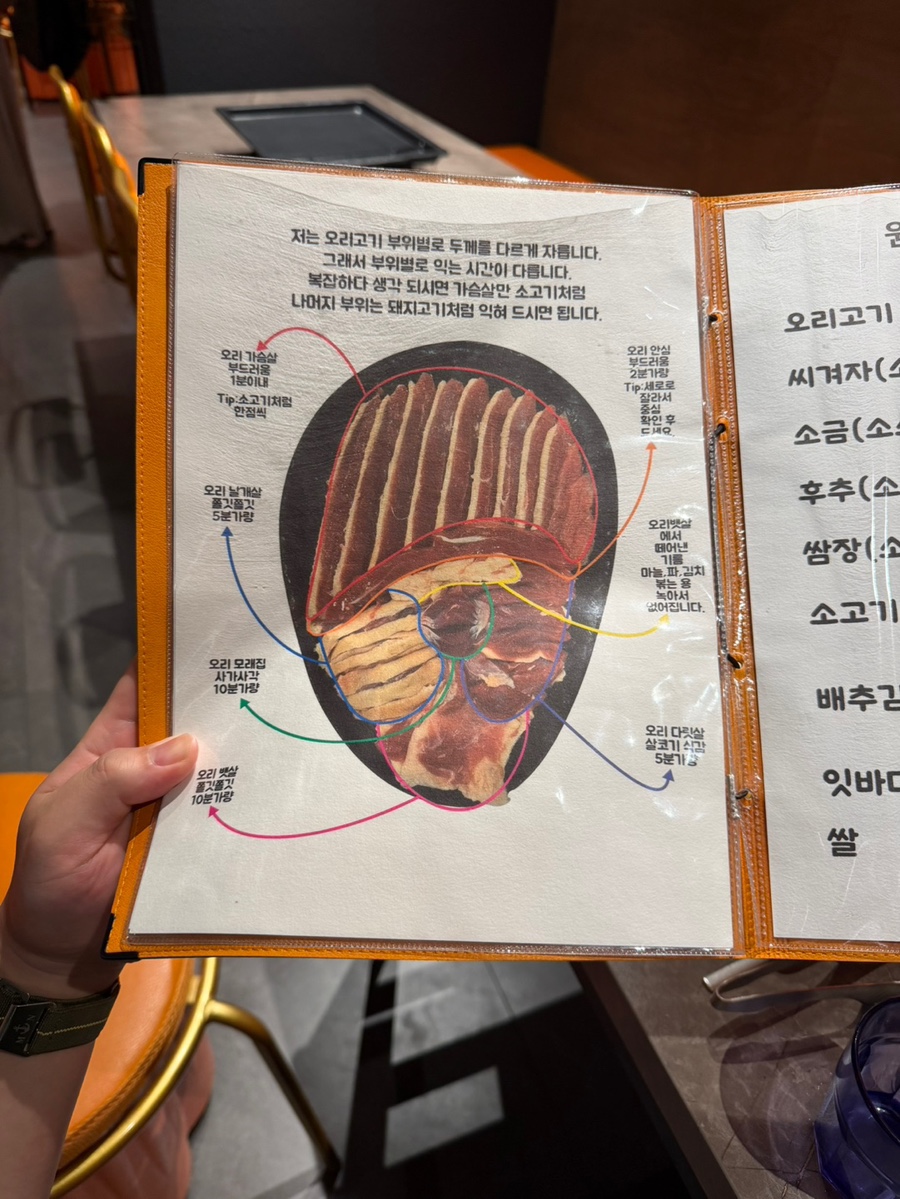 저는 오리고기 부위별로 두께를 다르게 자릅니다.
그래서 부위별로 익는 시간이 다릅니다.
복잡하다 생각 되시면 가슴살만 소고기처럼
나머지 부위는 돼지고기처럼 익혀 드시면 됩니다.
오리 가슴살
부드러움
1분이내
Tip:소고기처럼
한점씩
오리 안심
부드러움
2분가량
Tip:세로로
잘라서
중심
확인 후
드세요.
오리 날개살
쫄깃쫄깃
5분가량
오리뱃살
에서
떼어낸
기름
마늘,파,김치
볶는 용
녹아서
없어집니다.
오리 모래집
사가사각
10분가량
오리 다릿살
살코기 식감
5분가량
오리 뱃살
쫄깃쫄깃
10분가량
원
오리고기
씨겨자(소
소금(소
후추(소
쌈장(소
소고기
배추김
잇바디
쌀